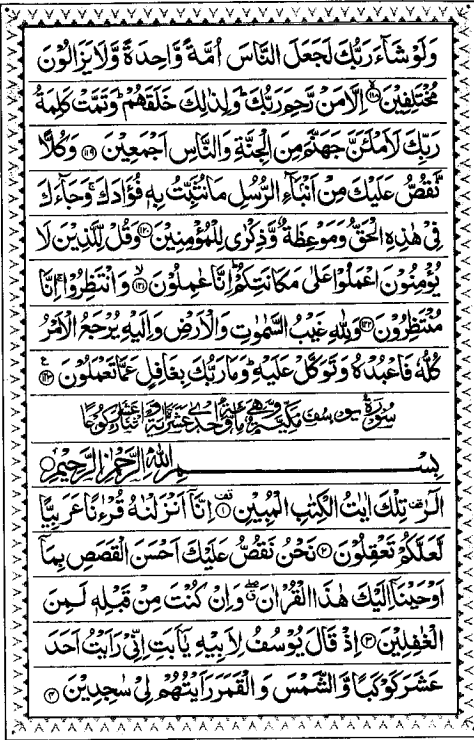 وَلَوْ شَآءَ رَبُّكَ لَجَعَلَ النَّاسَ اُمَّةً وَّاحِدَةً وَّلَا يَزَالُوْنَ
مُخْتَلِفِيْنَ ﴿۱۱۸﴾ اِلَّا مَنْ رَّحِمَ رَبُّكَ ؕ وَلِذٰلِكَ خَلَقَهُمْ ؕ وَتَمَّتْ كَلِمَةُ
رَبِّكَ لَاَمْلَـَٔنَّ جَهَنَّمَ مِنَ الْجِنَّةِ وَالنَّاسِ اَجْمَعِيْنَ ﴿۱۱۹﴾ وَكُلًّا
نَّقُصُّ عَلَيْكَ مِنْ اَنْۢبَآءِ الرُّسُلِ مَا نُثَبِّتُ بِهٖ فُؤَادَكَ ۚ وَجَآءَكَ
فِيْ هٰذِهِ الْحَقُّ وَمَوْعِظَةٌ وَّذِكْرٰى لِلْمُؤْمِنِيْنَ ﴿۱۲۰﴾ وَقُلْ لِّلَّذِيْنَ لَا
يُؤْمِنُوْنَ اعْمَلُوْا عَلٰى مَكَانَتِكُمْ ؕ اِنَّا عٰمِلُوْنَ ﴿۱۲۱﴾ وَانْتَظِرُوْا ۚ اِنَّا
مُنْتَظِرُوْنَ ﴿۱۲۲﴾ وَلِلّٰهِ غَيْبُ السَّمٰوٰتِ وَالْاَرْضِ وَاِلَيْهِ يُرْجَعُ الْاَمْرُ
كُلُّهٗ فَاعْبُدْهُ وَتَوَكَّلْ عَلَيْهِ ؕ وَمَا رَبُّكَ بِغَافِلٍ عَمَّا تَعْمَلُوْنَ ﴿۱۲۳﴾
سُوْرَةُ يُوْسُفَ مَكِّيَّةٌ وَّهِيَ مِائَةٌ وَّاِحْدٰى عَشْرَةَ اٰيَةً وَّاثْنَا عَشَرَ رُكُوْعًا
بِسْمِ اللّٰهِ الرَّحْمٰنِ الرَّحِيْمِ
الٓرٰ ۫ تِلْكَ اٰيٰتُ الْكِتٰبِ الْمُبِيْنِ ﴿۱﴾ اِنَّآ اَنْزَلْنٰهُ قُرْءٰنًا عَرَبِيًّا
لَّعَلَّكُمْ تَعْقِلُوْنَ ﴿۲﴾ نَحْنُ نَقُصُّ عَلَيْكَ اَحْسَنَ الْقَصَصِ بِمَآ
اَوْحَيْنَآ اِلَيْكَ هٰذَا الْقُرْاٰنَ ۖ وَاِنْ كُنْتَ مِنْ قَبْلِهٖ لَمِنَ
الْغٰفِلِيْنَ ﴿۳﴾ اِذْ قَالَ يُوْسُفُ لِاَبِيْهِ يٰۤاَبَتِ اِنِّيْ رَاَيْتُ اَحَدَ
عَشَرَ كَوْكَبًا وَّالشَّمْسَ وَالْقَمَرَ رَاَيْتُهُمْ لِيْ سٰجِدِيْنَ ﴿۴﴾